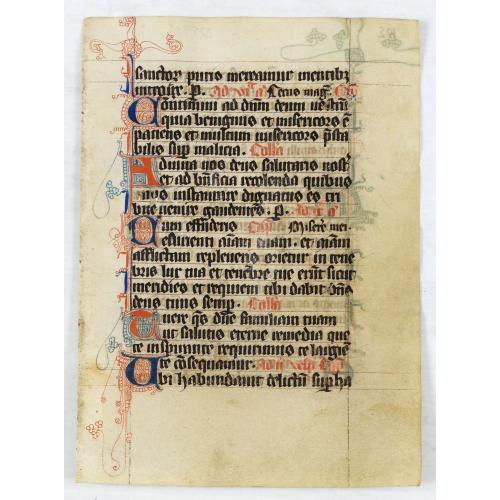 sanctor puris mereamur mentibz
introire. P. Ad vi. a Deus mag.
Convertimini ad dnm deum vestrum
quia benignus et misericors e
patiens et multum misericors psta
bilis sup malicia. Colla
Adiuva nos deus salutaris nost
et ad bnficia recolenda quibus
nos instaurare dignatus es tri
bue venire gaudentes. P.
Cum effuderis Capl Misere mei
esurienti aiam tuam. et aiam
afflictam repleveris orietur in tene
bris lux tua et tenebre tue erut sicut
meridies et requiem tibi dabit dns
deus tuus semp. Colla
Tuere qs dne familiam tuam
ut salutis eterne remedia que
te inspirante requirimus te largie
te cosequamur. Ad
Ubi habundavit delictu supha